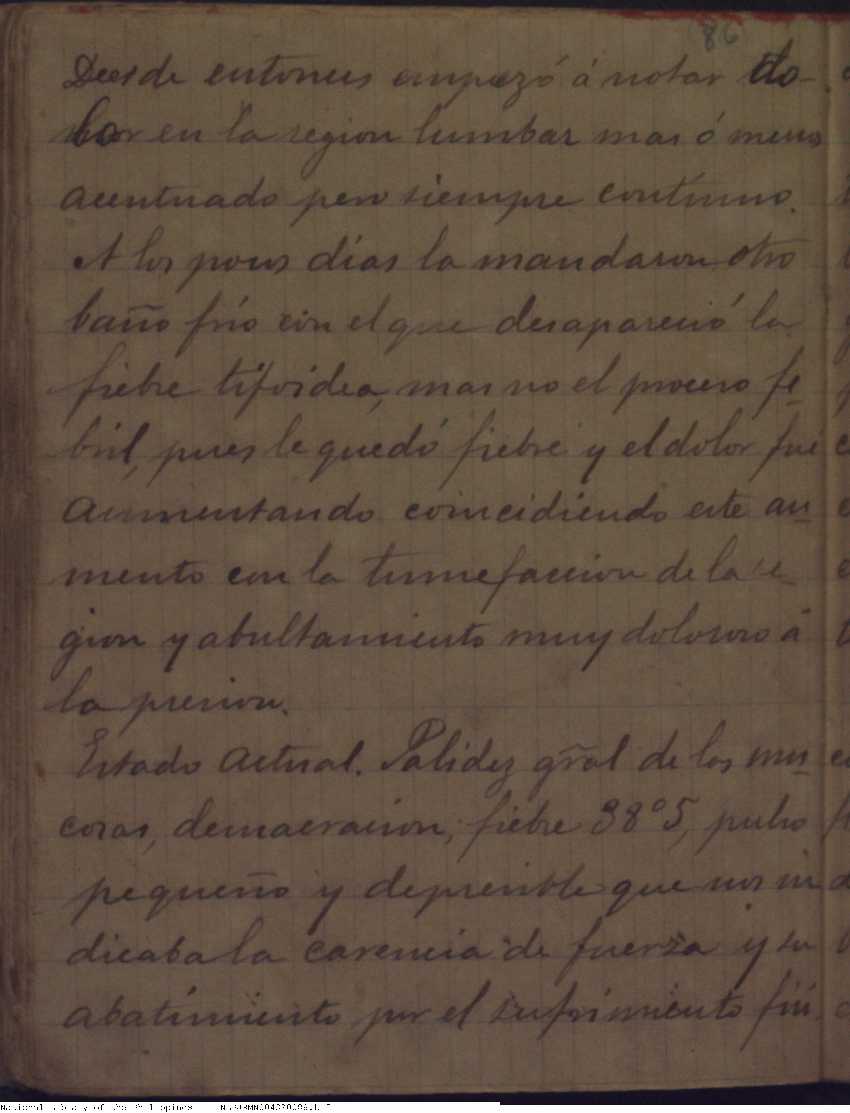 86
Desde entonces empezó á notar do-
lor en la region lumbar mas ó menos
acentuado pero siempre contínuo.
A los pocos días la mandaron otro
baño frío con el que desapareció la
fiebre tifoidea, mas no el proceso fe-
bril, pues le quedó fiebre y el dolor fué
aumentando coincidiendo este au-
mento con la tumefaccion de la re-
gion y abultamiento muy doloroso á
la presion.
Estado Actual. Palidez gral de las mu-
cosas, demacracion, fiebre 38°5, pulso
pequeño y depresible que nos in
dicaba la carencia de fuerza y su
abatimiento por el sufrimiento físi
National Library of the Philippines